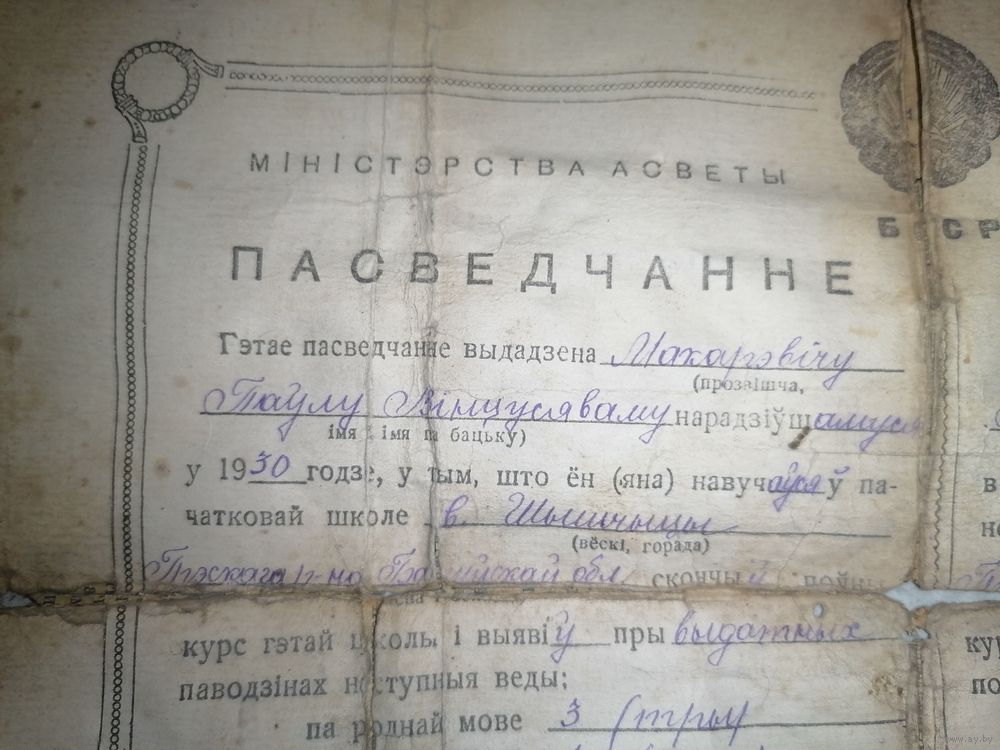 МІНІСТЭРСТВА АСВЕТЫ
БССР
ПАСВЕДЧАННЕ
Гэтае пасведчанне выдадзена Макарэвічу
(прозвішча,
Паўлу Вінцусяваму нарадзіўшамуся
імя і імя па бацьку)
у 1930 годзе, у тым, што ён (яна) навучаўся ў па-
чатковай школе в. Шышчыцы
(вёскі, горада)
р-на обл скончыў поўны
курс гэтай школы і выявіў пры выдатных
паводзінах наступныя веды:
па роднай мове 3 (тры
www.ay.by